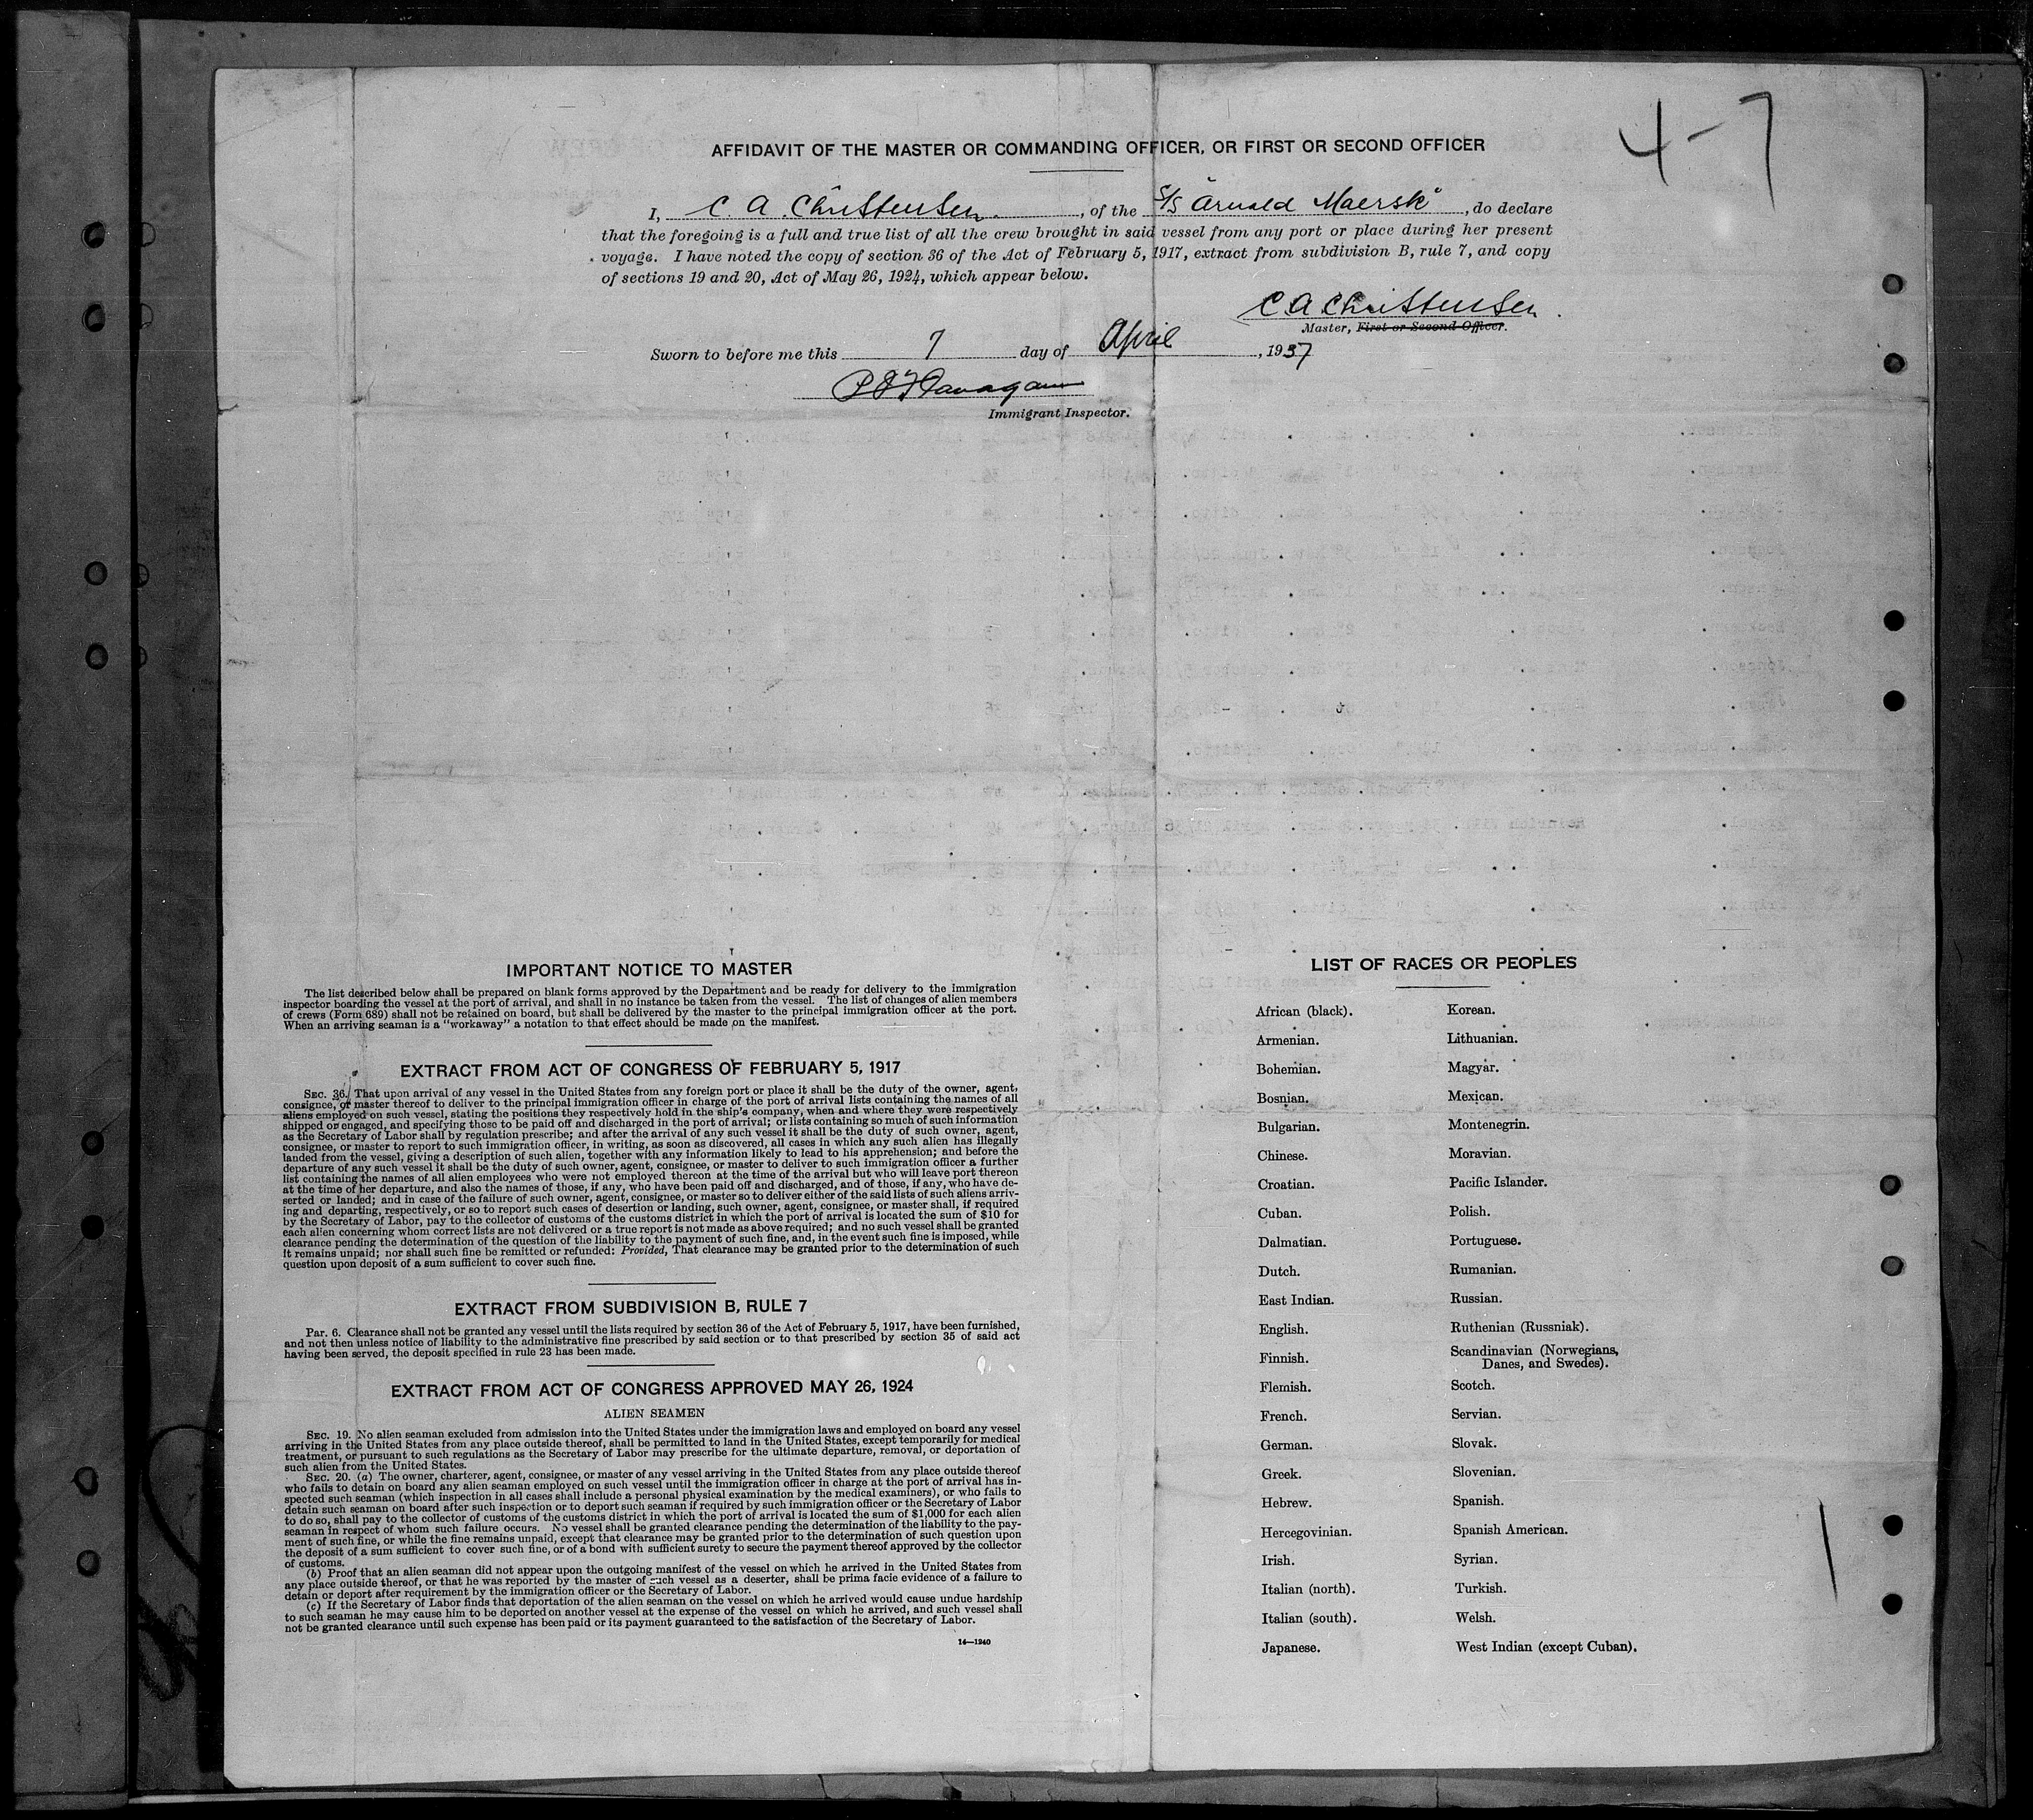 4-7
AFFIDAVIT OF THE MASTER OR COMMANDING OFFICER, OR FIRST OR SECOND OFFICER
I, C. A. Christensen, of the S/S "Arnold Maersk", do declare
that the foregoing is a full and true list of all the crew brought in said vessel from any port or place during her present
voyage. I have noted the copy of section 36 of the Act of February 5, 1917, extract from subdivision B, rule 7, and copy
of sections 19 and 20, Act of May 26, 1924, which appear below.
C A Christensen.
Master, First or Second Officer.
Sworn to before me this 7 day of April, 1937
Immigrant Inspector.
IMPORTANT NOTICE TO MASTER
The list described below shall be prepared on blank forms approved by the Department and be ready for delivery to the immigration
inspector boarding the vessel at the port of arrival, and shall in no instance be taken from the vessel. The list of changes of alien members
of crews (Form 689) shall not be retained on board, but shall be delivered by the master to the principal immigration officer at the port.
When an arriving seaman is a "workaway" a notation to that effect should be made on the manifest.
EXTRACT FROM ACT OF CONGRESS OF FEBRUARY 5, 1917
SEC. 36. That upon arrival of any vessel in the United States from any foreign port or place it shall be the duty of the owner, agent,
consignee, or master thereof to deliver to the principal immigration officer in charge of the port of arrival lists containing the names of all
aliens employed on such vessel, stating the positions they respectively hold in the ship's company, when and where they were respectively
shipped or engaged, and specifying those to be paid off and discharged in the port of arrival; or lists containing so much of such information
as the Secretary of Labor shall by regulation prescribe; and after the arrival of any such vessel it shall be the duty of such owner, agent,
consignee, or master to report to such immigration officer, in writing, as soon as discovered, all cases in which any such alien has illegally
landed from the vessel, giving a description of such alien, together with any information likely to lead to his apprehension; and before the
departure of any such vessel it shall be the duty of such owner, agent, consignee, or master to deliver to such immigration officer a further
list containing the names of all alien employees who were not employed thereon at the time of the arrival but who will leave port thereon
at the time of her departure, and also the names of those, if any, who have been paid off and discharged, and of those, if any, who have de-
serted or landed; and in case of the failure of such owner, agent, consignee, or master so to deliver either of the said lists of such aliens arriv-
ing and departing, respectively, or so to report such cases of desertion or landing, such owner, agent, consignee, or master shall, if required
by the Secretary of Labor, pay to the collector of customs of the customs district in which the port of arrival is located the sum of $10 for
each alien concerning whom correct lists are not delivered or a true report is not made as above required; and no such vessel shall be granted
clearance pending the determination of the question of the liability to the payment of such fine, and, in the event such fine is imposed, while
it remains unpaid; nor shall such fine be remitted or refunded: Provided, That clearance may be granted prior to the determination of such
question upon deposit of a sum sufficient to cover such fine.
EXTRACT FROM SUBDIVISION B, RULE 7
Par. 6. Clearance shall not be granted any vessel until the lists required by section 36 of the Act of February 5, 1917, have been furnished,
and not then unless notice of liability to the administrative fine prescribed by said section or to that prescribed by section 35 of said act
having been served, the deposit specified in rule 23 has been made.
EXTRACT FROM ACT OF CONGRESS APPROVED MAY 26, 1924
ALIEN SEAMEN
SEC. 19. No alien seaman excluded from admission into the United States under the immigration laws and employed on board any vessel
arriving in the United States from any place outside thereof, shall be permitted to land in the United States, except temporarily for medical
treatment, or pursuant to such regulations as the Secretary of Labor may prescribe for the ultimate departure, removal, or deportation of
such alien from the United States.
SEC. 20. (a) The owner, charterer, agent, consignee, or master of any vessel arriving in the United States from any place outside thereof
who fails to detain on board any alien seaman employed on such vessel until the immigration officer in charge at the port of arrival has in-
spected such seaman (which inspection in all cases shall include a personal physical examination by the medical examiners), or who fails to
detain such seaman on board after such inspection or to deport such seaman if required by such immigration officer or the Secretary of Labor
to do so, shall pay to the collector of customs of the customs district in which the port of arrival is located the sum of $1,000 for each alien
seaman in respect of whom such failure occurs. No vessel shall be granted clearance pending the determination of the liability to the pay-
ment of such fine, or while the fine remains unpaid, except that clearance may be granted prior to the determination of such question upon
the deposit of a sum sufficient to cover such fine, or of a bond with sufficient surety to secure the payment thereof approved by the collector
of customs.
(b) Proof that an alien seaman did not appear upon the outgoing manifest of the vessel on which he arrived in the United States from
any place outside thereof, or that he was reported by the master of such vessel as a deserter, shall be prima facie evidence of a failure to
detain or deport after requirement by the immigration officer or the Secretary of Labor.
(c) If the Secretary of Labor finds that deportation of the alien seaman on the vessel on which he arrived would cause undue hardship
to such seaman he may cause him to be deported on another vessel at the expense of the vessel on which he arrived, and such vessel shall
not be granted clearance until such expense has been paid or its payment guaranteed to the satisfaction of the Secretary of Labor.
14—1240
LIST OF RACES OR PEOPLES
African (black).
Armenian.
Bohemian.
Bosnian.
Bulgarian.
Chinese.
Croatian.
Cuban.
Dalmatian.
Dutch.
East Indian.
English.
Finnish.
Flemish.
French.
German.
Greek.
Hebrew.
Hercegovinian.
Irish.
Italian (north).
Italian (south).
Japanese.
Korean.
Lithuanian.
Magyar.
Mexican.
Montenegrin.
Moravian.
Pacific Islander.
Polish.
Portuguese.
Rumanian.
Russian.
Ruthenian (Russniak).
Scandinavian (Norwegians,
Danes, and Swedes).
Scotch.
Servian.
Slovak.
Slovenian.
Spanish.
Spanish American.
Syrian.
Turkish.
Welsh.
West Indian (except Cuban).